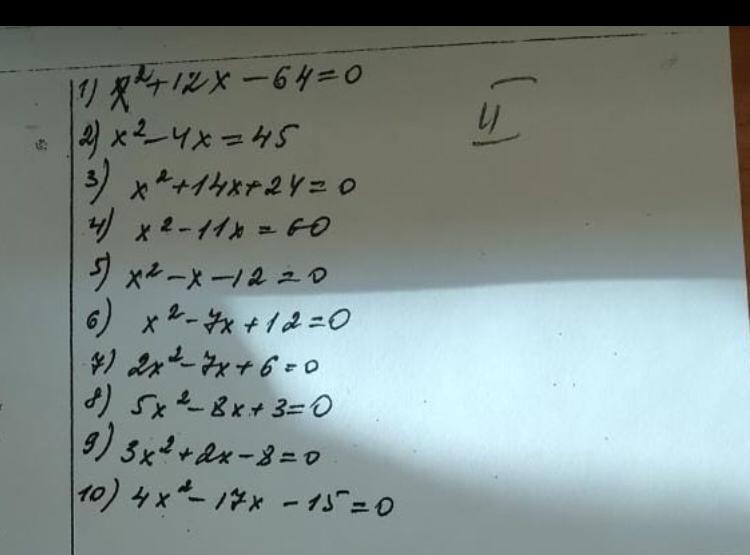 1) x²+12x-64=0
4
2) x²-4x=45
3) x²+14x+24=0
4) x²-11x=60
5) x²-x-12=0
6) x²-7x+12=0
7) 2x²-7x+6=0
8) 5x²-8x+3=0
9) 3x²+2x-8=0
10) 4x²-17x-15=0